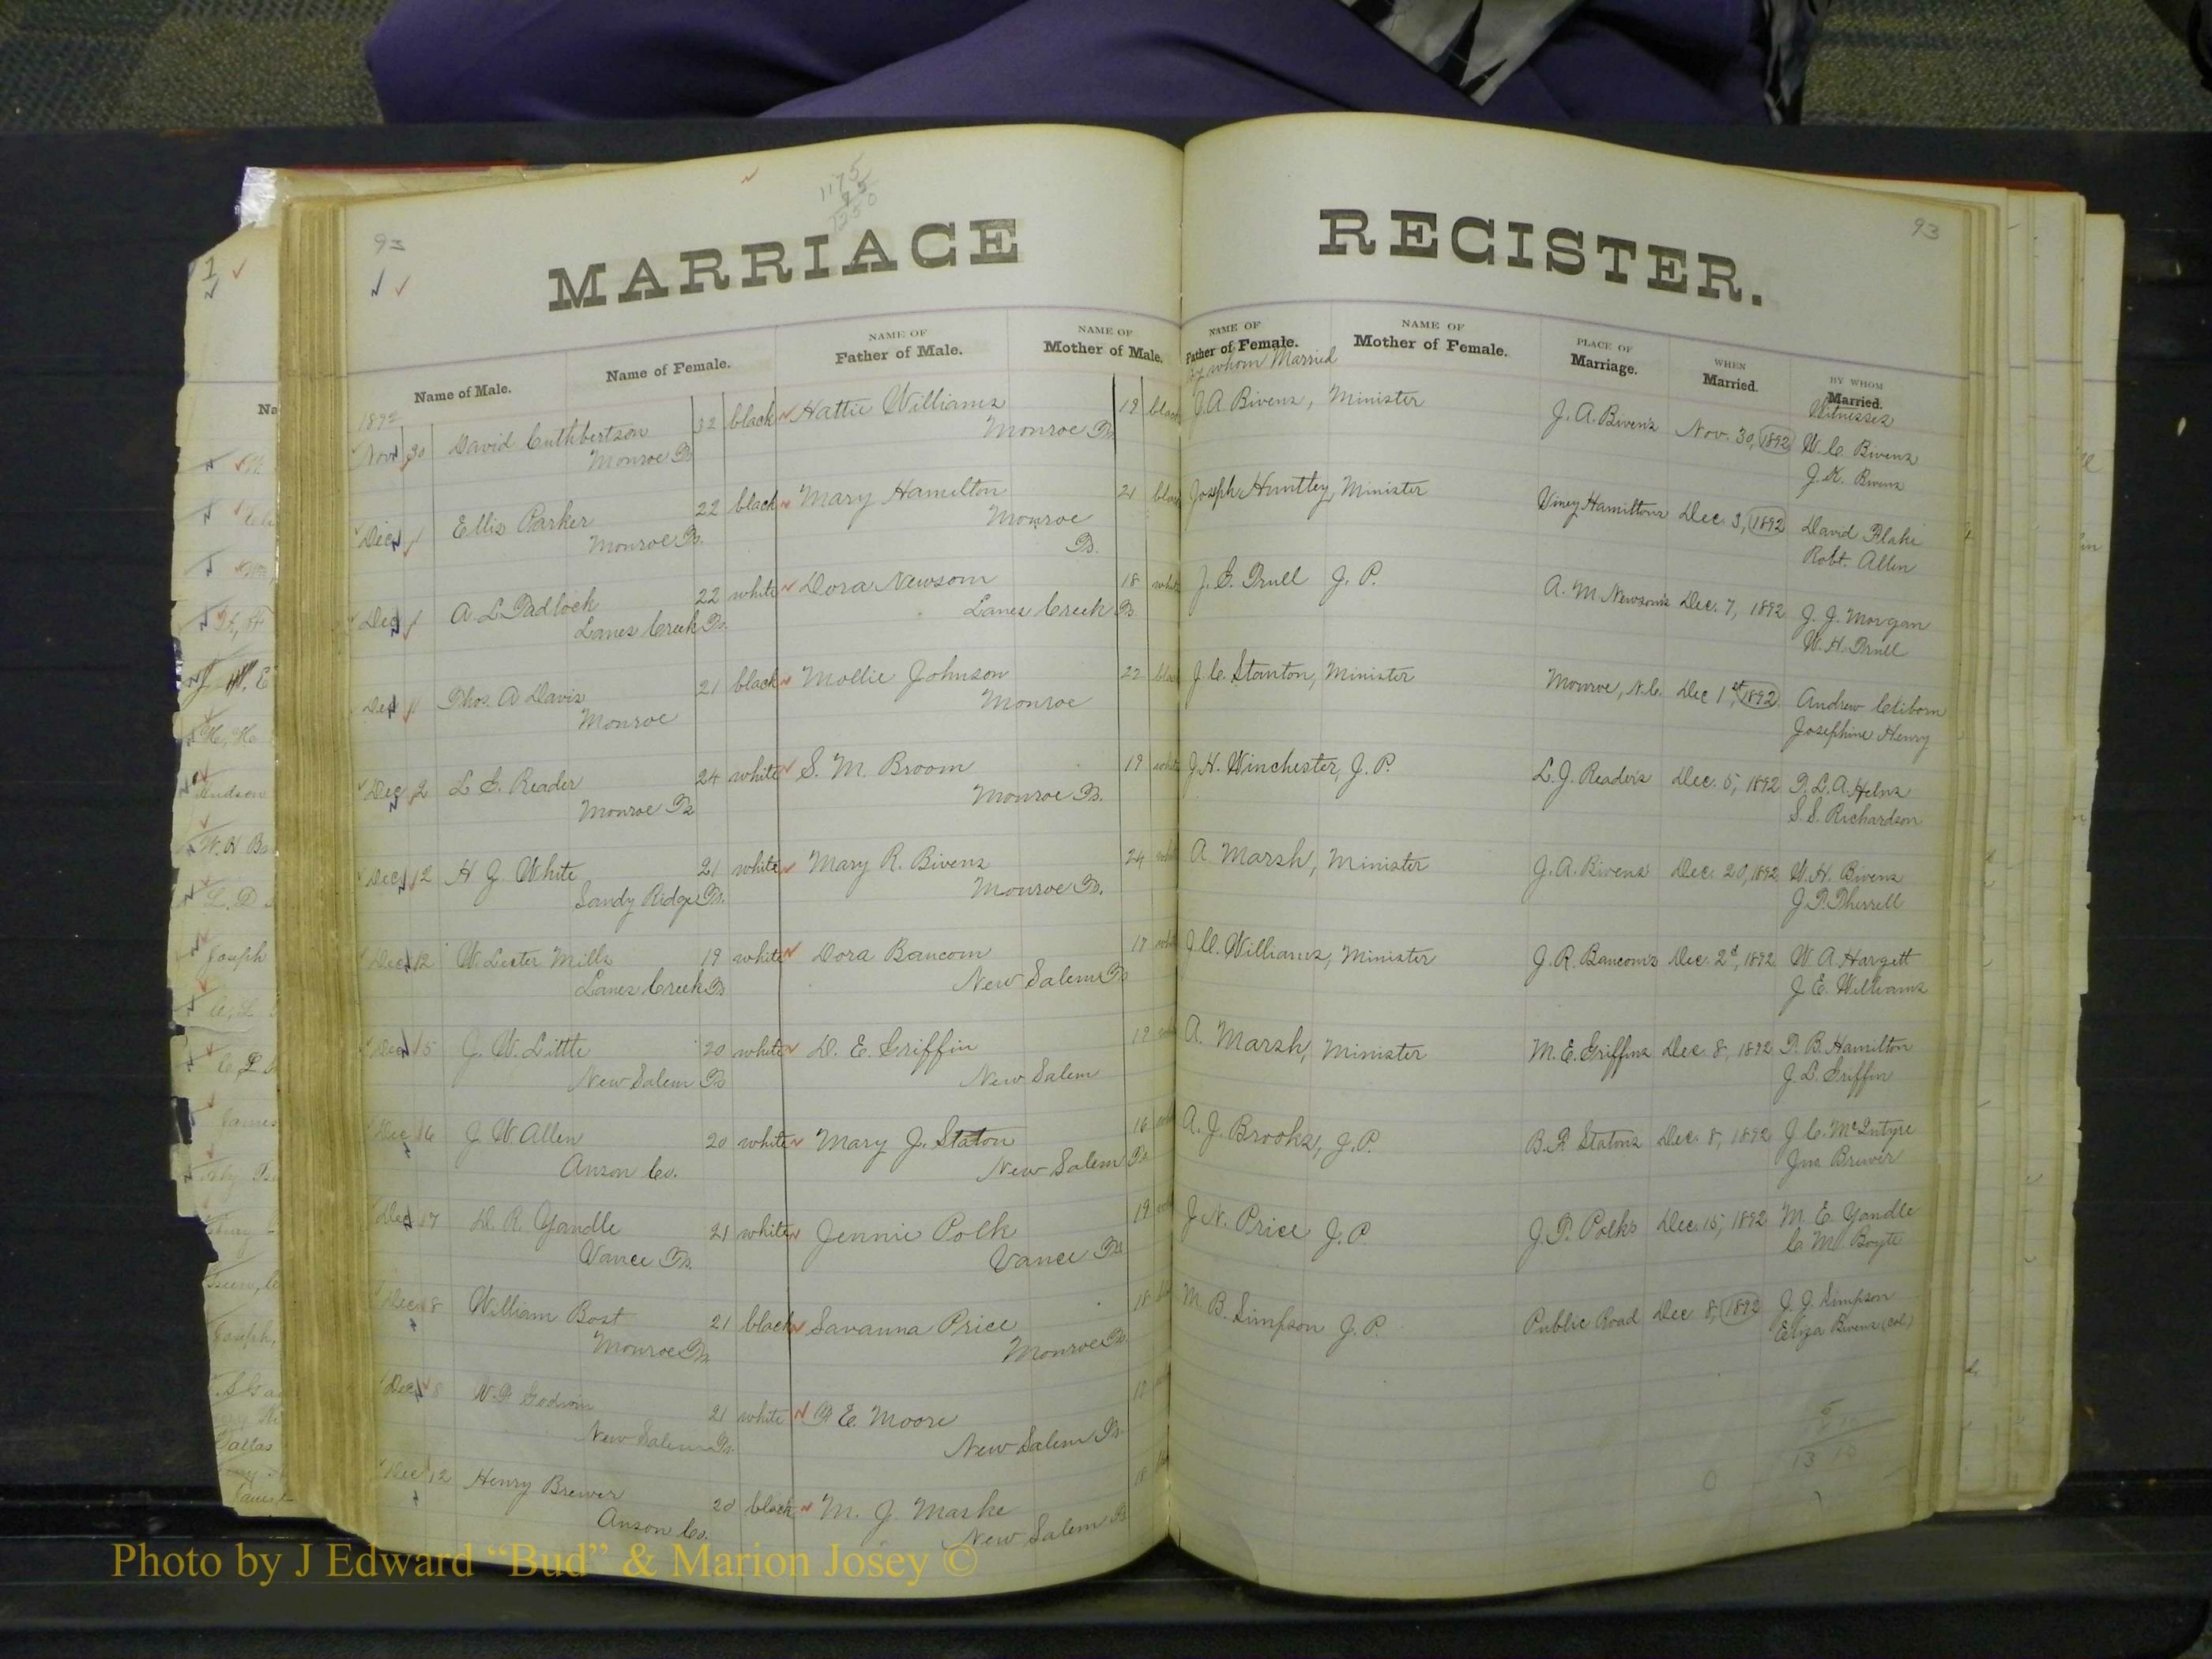 1175
1250
93
93
MARRIAGE REGISTER.
Name of Male.
Name of Female.
NAME OF Father of Male.
NAME OF Mother of Male.
NAME OF Father of Female.
By whom Married
NAME OF Mother of Female.
PLACE OF Marriage.
WHEN Married.
BY WHOM Married.
Witnesses
1892
Nov 30 David Cuthbertson 32 black Hattie Williams 19 black J. A. Bivens, Minister J. A. Bivens Nov. 30, 1892 W. C. Bivens
Monroe Ts. Monroe Ts. J. K. Bivens
Dec 1 Ellis Parker 22 black Mary Hamilton 21 black Joseph Huntley, Minister Viney Hamiltons Dec. 3, 1892 David Blake
Monroe Ts. Monroe Ts. Robt. Allen
Dec 1 A. L. Padlock 22 white Dora Newsom 18 white J. E. Trull J. P. A. M. Newsom's Dec. 7, 1892 J. J. Morgan
Lanes Creek Ts. Lanes Creek Ts. W. H. Trull
Dec 1 Thos. A Davis 21 black Mollie Johnson 22 black J. C. Stanton, Minister Monroe, N.C. Dec 1st, 1892 Andrew Cliborn
Monroe Monroe Josephine Henry
Dec 2 L. G. Reader 24 white S. M. Broom 19 white J. H. Winchester, J. P. L. J. Reader's Dec. 5, 1892 T. L. A. Helms
Monroe Ts Monroe Ts. S. S. Richardson
Dec 12 H. G. White 21 white Mary R. Bivens 24 white A. Marsh, Minister J. A. Bivens' Dec. 20, 1892 W. H. Bivens
Sandy Ridge Ts. Monroe Ts. J. P. Therrell
Dec 12 W. Lester Mills 19 white Dora Baucom 17 white J. W. Williams, Minister J. R. Baucom's Dec. 2d, 1892 W. A. Hargett
Lanes Creek Ts New Salem Ts J. E. Williams
Dec 5 J. W. Little 20 white D. E. Griffin 19 A. Marsh, Minister M. E. Griffins Dec. 8, 1892 T. B. Hamilton
New Salem Ts New Salem J. L. Griffin
Dec 6 J. W. Allen 20 white Mary J. Staton 16 A. J. Brooks, J. P. B. F. Statons Dec. 8, 1892 J. C. McIntyre
Anson Co. New Salem Ts Jno. Brewer
Dec 7 D. R. Yandle 21 white Jennie Polk 19 J. N. Price J. P. J. T. Polks Dec. 15, 1892 M. E. Yandle
Vance Ts. Vance Ts C. M. Boyte
Dec 8 William Bost 21 black Savanna Price 18 M. B. Simpson J. P. Public Road Dec 8, 1892 J. J. Simpson
Monroe Ts Monroe Ts. Eliza Bivens (col)
Dec 8 W. F. Godwin 21 white F. E. Moore
New Salem Ts. New Salem Ts.
Dec 12 Henry Brewer 20 black M. J. Marshe
Anson Co. New Salem Ts
Photo by J Edward “Bud” & Marion Josey ©